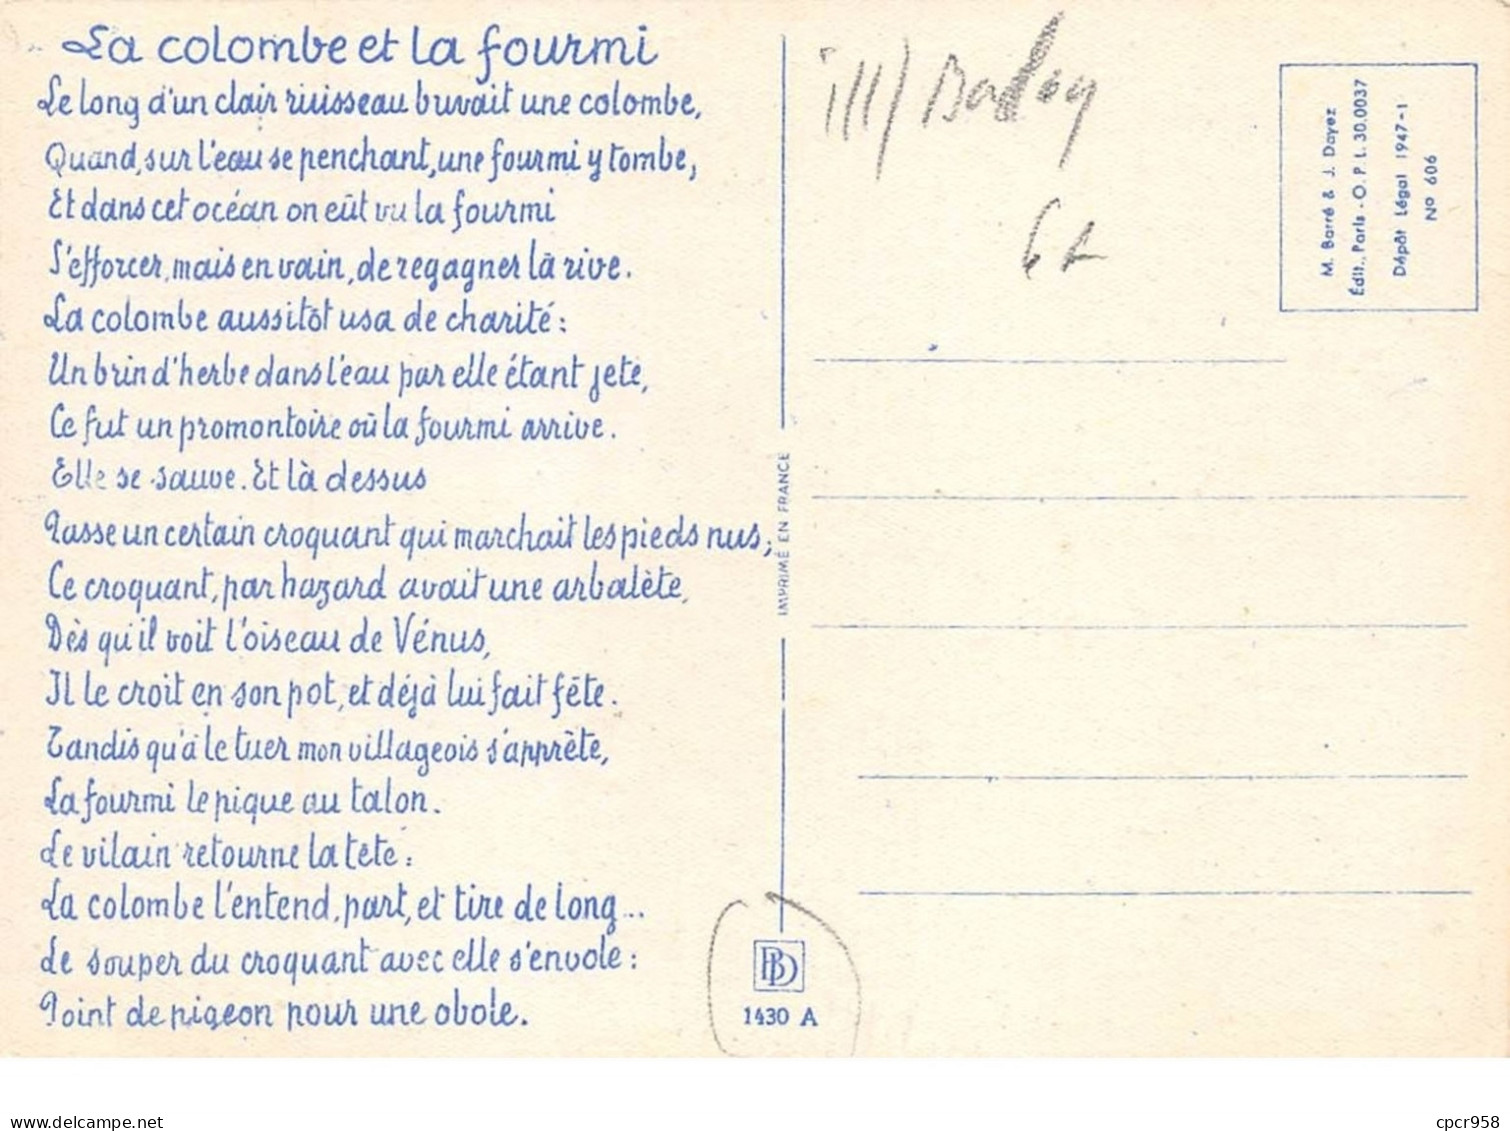 La colombe et la fourmi
Le long d'un clair ruisseau buvait une colombe,
Quand, sur l'eau se penchant, une fourmi y tombe,
Et dans cet océan on eût vu la fourmi
S'efforcer, mais en vain, de regagner la rive.
La colombe aussitôt usa de charité :
Un brin d'herbe dans l'eau par elle étant jeté,
Ce fut un promontoire où la fourmi arrive.
Elle se sauve. Et là dessus
Passe un certain croquant qui marchait les pieds nus;
Ce croquant, par hazard avait une arbalète,
Dès qu'il voit l'oiseau de Vénus,
Il le croit en son pot, et déjà lui fait fête.
Tandis qu'à le tuer mon villageois s'apprête,
La fourmi le pique au talon.
Le vilain retourne la tête :
La colombe l'entend, part, et tire de long...
Le souper du croquant avec elle s'envole :
Point de pigeon pour une obole.
IMPRIMÉ EN FRANCE
BD
1430 A
ill/
M. Barré & J. Dayez
Édit., Paris - O. P. L. 30.0037
Dépôt Légal 1947-1
No 606
cpcr958
www.delcampe.net